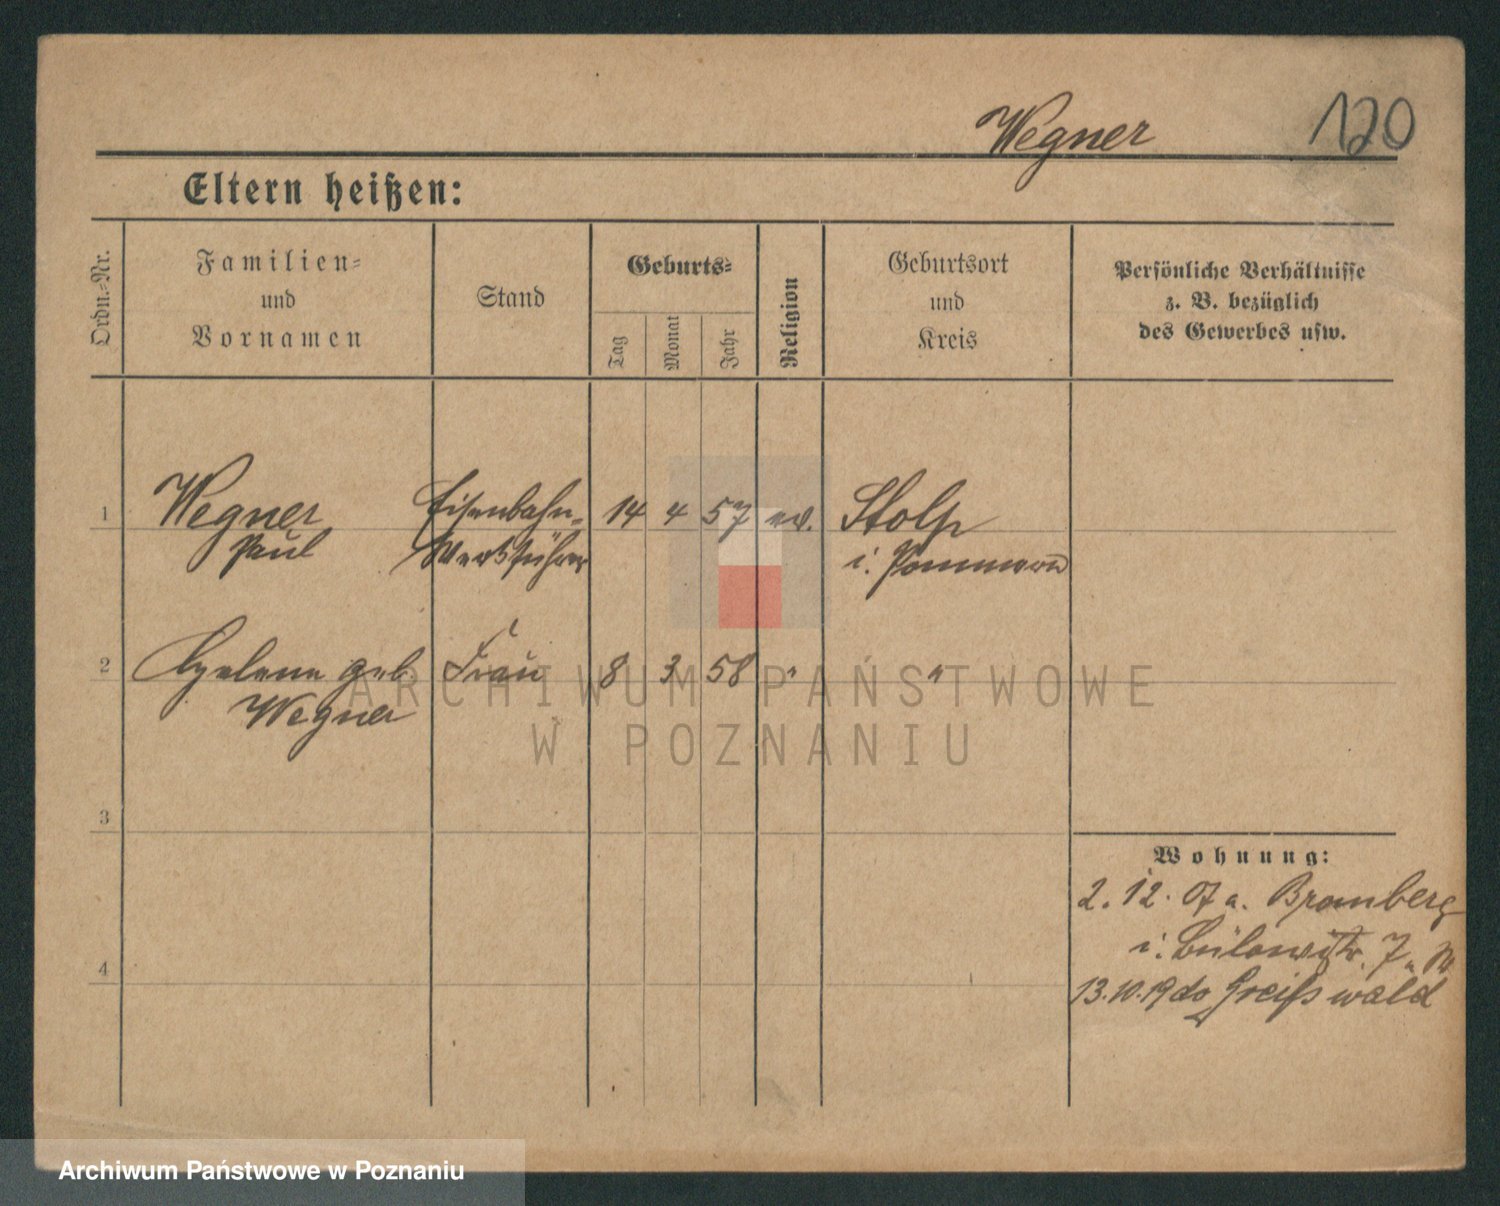 Wegner 120
Eltern heißen:
Ordn.-Nr.
Familien-
und
Vornamen
Stand
Geburts-
Tag
Monat
Jahr
Religion
Geburtsort
und
Kreis
Persönliche Verhältnisse
z. B. bezüglich
des Gewerbes usw.
1 Wegner Eisenbahn- 14 4 57 ev. Stolp
Paul Werkführer i. Pommern
2 geb. Frau 8 3 58 " "
Wegner
ARCHIWUM PAŃSTWOWE
W POZNANIU
3
Wohnung:
2. 12. 07 a. Bromberg
i. Bülowstr. 7
4
13.10.19 do Greifswald
Archiwum Państwowe w Poznaniu